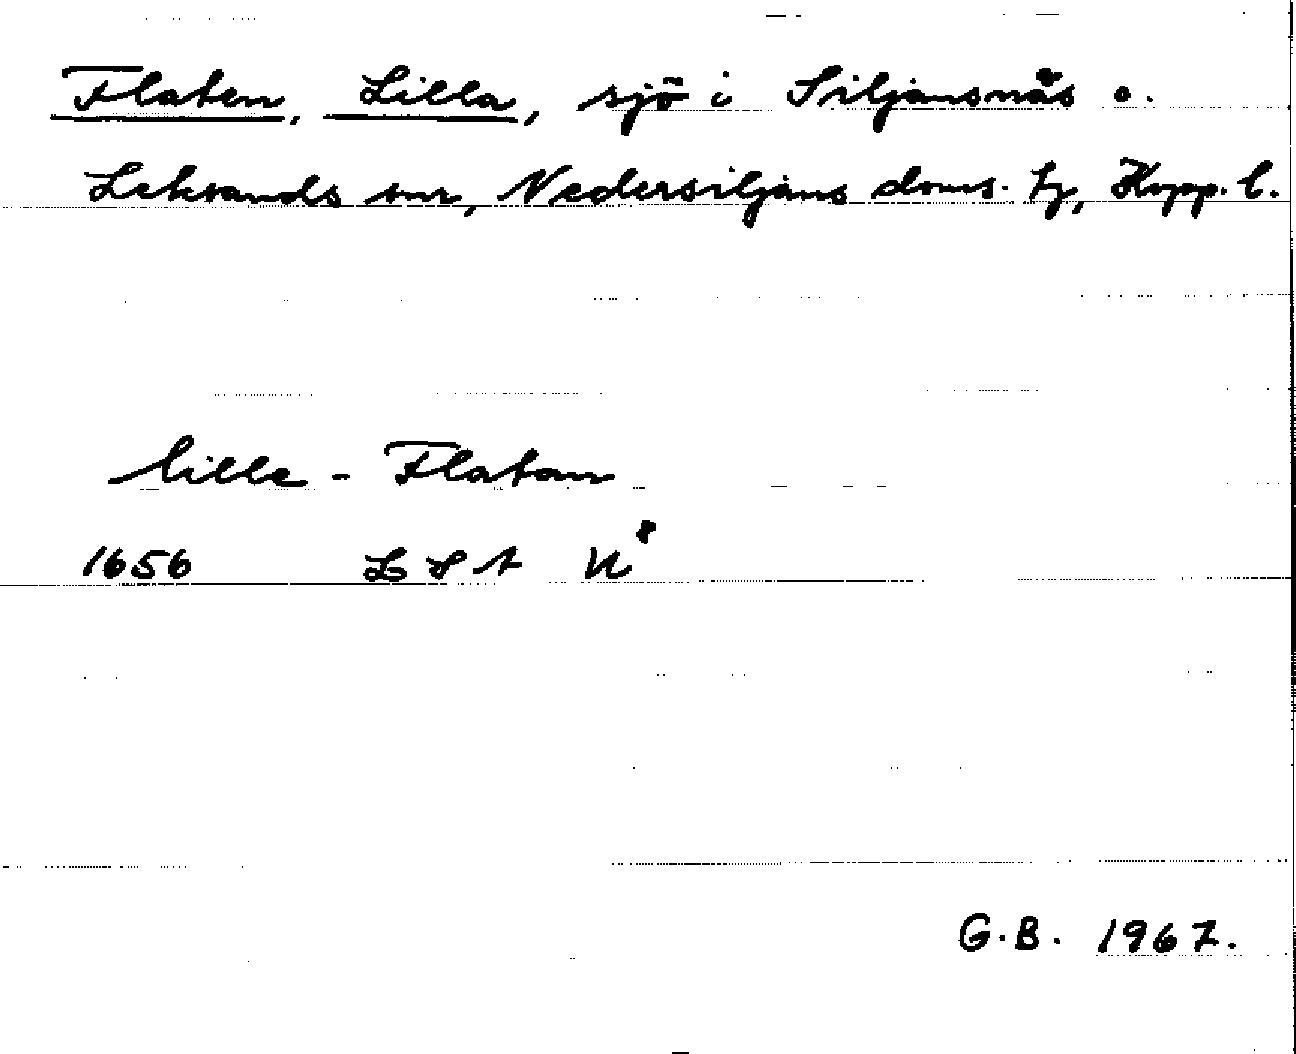 Flaten, Lilla, sjö i Siljansnäs o.
Leksands snr, Nedersiljans doms. tg, Kopp. l.
lille - Flatan
1656 LSA U 8
G.B. 1967.